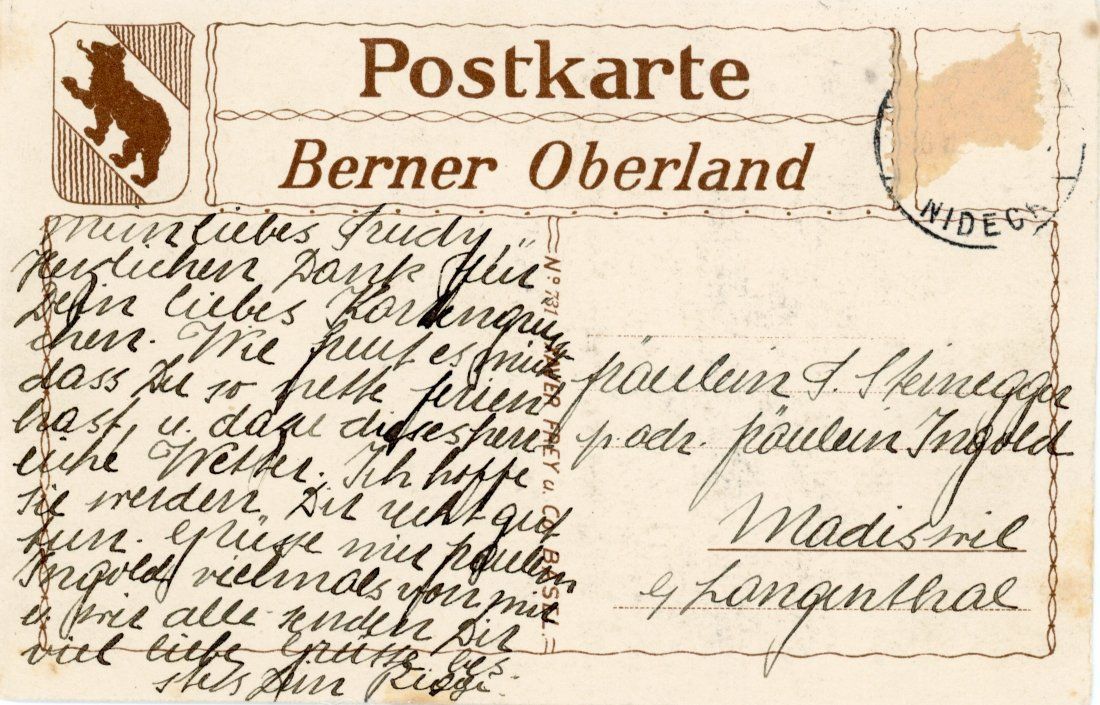 Postkarte
Berner Oberland
NIDECK
Mein liebes Trudy,
Herzlichen Dank für
Dein liebes Kartengrüss-
chen. Wie freut es mich
dass Du so nette Ferien
hast, u. dazu dieses herr
liche Wetter. Ich hoffe
sie werden Dir recht gut
tun. Grüsse mir Fräulein
Ingold vielmals von mir
u. wir alle senden Dir
viel liebe Grüsse bes
stets Dein
No 731 FREY u. Co. BASEL.
Fräulein T. Steinegger
p. adr. Fräulein Ingold
Madiswil
b/ Langenthal